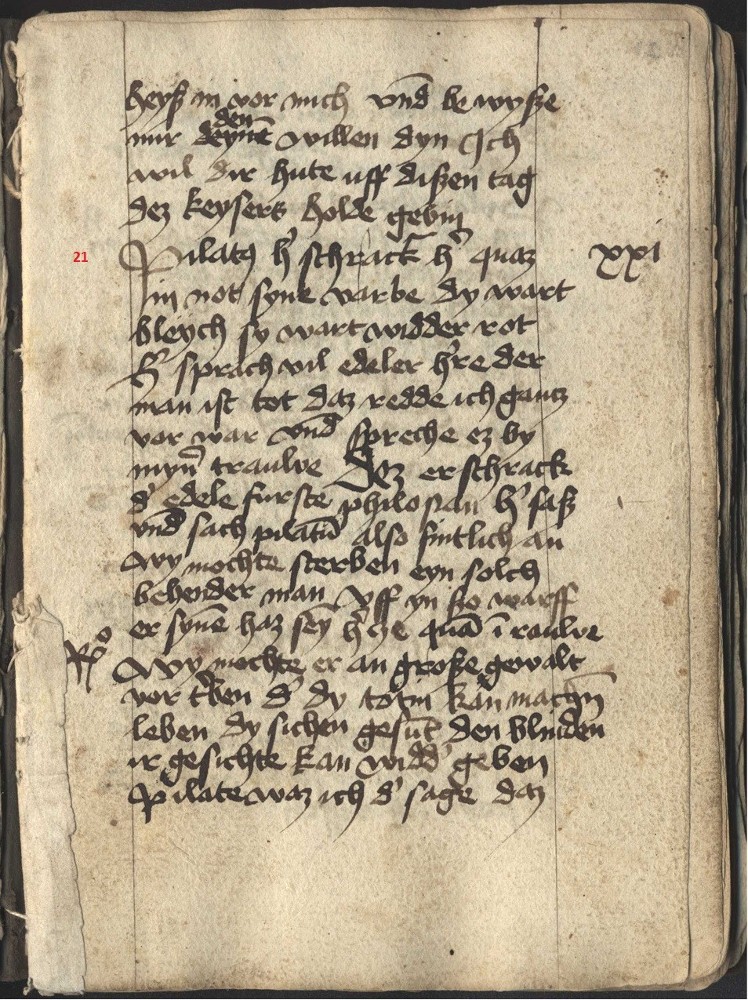 heyß in vor mich vnd̄ bewyße
den
mir deynē willen dyn Ich
wil dir hute uff dißen tag
dez keysers holde gebin
21 Pilatꝯ h' schrack h' quaz xxi
In not syne varbe dy wart
bleych sy wart widder rot
h' sprach vil edeler h're der
man ist tot daz redde ich gancz
vor war vnd̄ spreche ez by
myn' trauwe Dez erschrack
d' edele furste h' saß
vnd̄ sach pilatū also sintlich an
wy mochte sterben eyn solch
behender man vff yn ßo warff
er synē haz quā ī rauwe
Rͦ wy mochte er an große gewalt
vor d' dy totin kan machin
leben dy sichen gesūt den blinden
ir gesichte kan widd' geben
Pilate waz ich d' sage daz